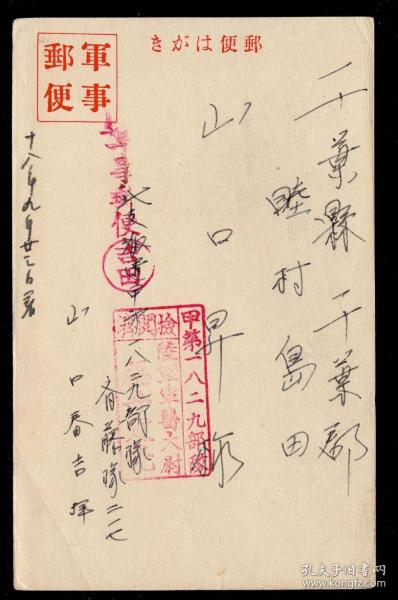 郵便はがき
軍事
郵便
千葉縣千葉郡
睦村島田
山口昇様
軍事郵便
吉田
北支派遣甲第一八二九部隊
斉藤隊二ノ七
山口春吉拝
十八年九月廿三日着
甲第一八二九部隊
陸軍軍醫大尉
檢閲濟
孔夫子旧书网
www.kongfz.com